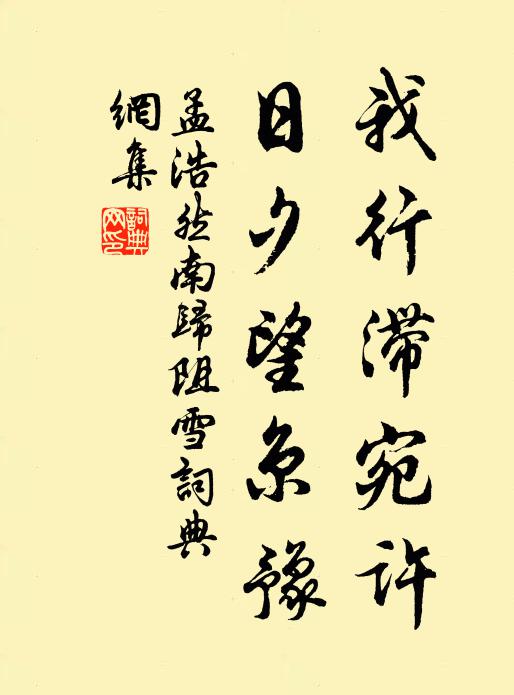 我行滞宛許
日夕望京豫
孟浩然南歸阻雪詞典
網集
詞典网印